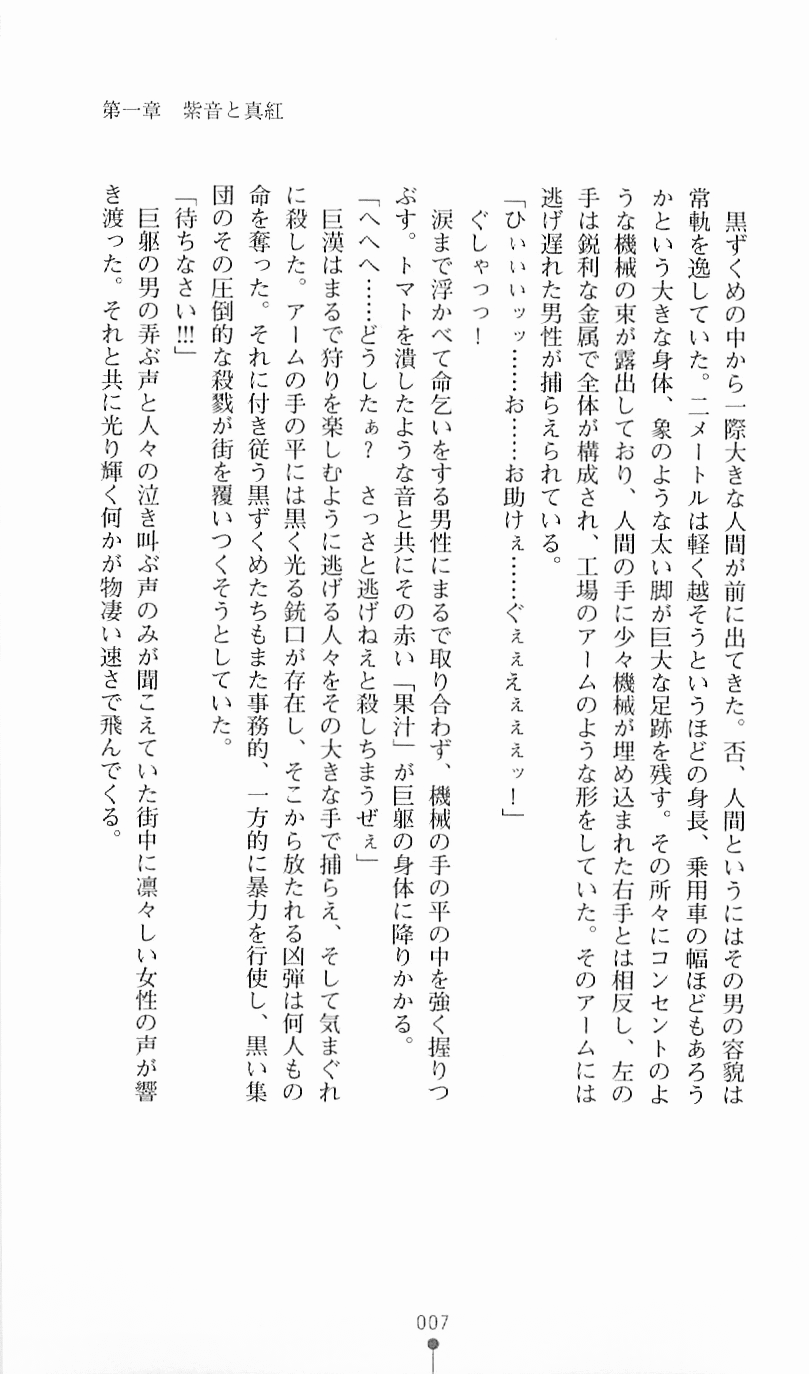 第一章　紫音と真紅
　黒ずくめの中から一際大きな人間が前に出てきた。否、人間というにはその男の容貌は
常軌を逸していた。二メートルは軽く越そうというほどの身長、乗用車の幅ほどもあろう
かという大きな身体、象のような太い脚が巨大な足跡を残す。その所々にコンセントのよ
うな機械の束が露出しており、人間の手に少々機械が埋め込まれた右手とは相反し、左の
手は鋭利な金属で全体が構成され、工場のアームのような形をしていた。そのアームには
逃げ遅れた男性が捕らえられている。
「ひぃぃぃッッ……お……お助けぇ……ぐぇぇえぇぇぇッ！」
　ぐしゃっっ！
　涙まで浮かべて命乞いをする男性にまるで取り合わず、機械の手の平の中を強く握りつ
ぶす。トマトを潰したような音と共にその赤い「果汁」が巨躯の身体に降りかかる。
「へへへ……どうしたぁ？　さっさと逃げねえと殺しちまうぜぇ」
　巨漢はまるで狩りを楽しむように逃げる人々をその大きな手で捕らえ、そして気まぐれ
に殺した。アームの手の平には黒く光る銃口が存在し、そこから放たれる凶弾は何人もの
命を奪った。それに付き従う黒ずくめたちもまた事務的、一方的に暴力を行使し、黒い集
団のその圧倒的な殺戮が街を覆いつくそうとしていた。
「待ちなさい!!!」
　巨躯の男の弄ぶ声と人々の泣き叫ぶ声のみが聞こえていた街中に凛々しい女性の声が響
き渡った。それと共に光り輝く何かが物凄い速さで飛んでくる。
007